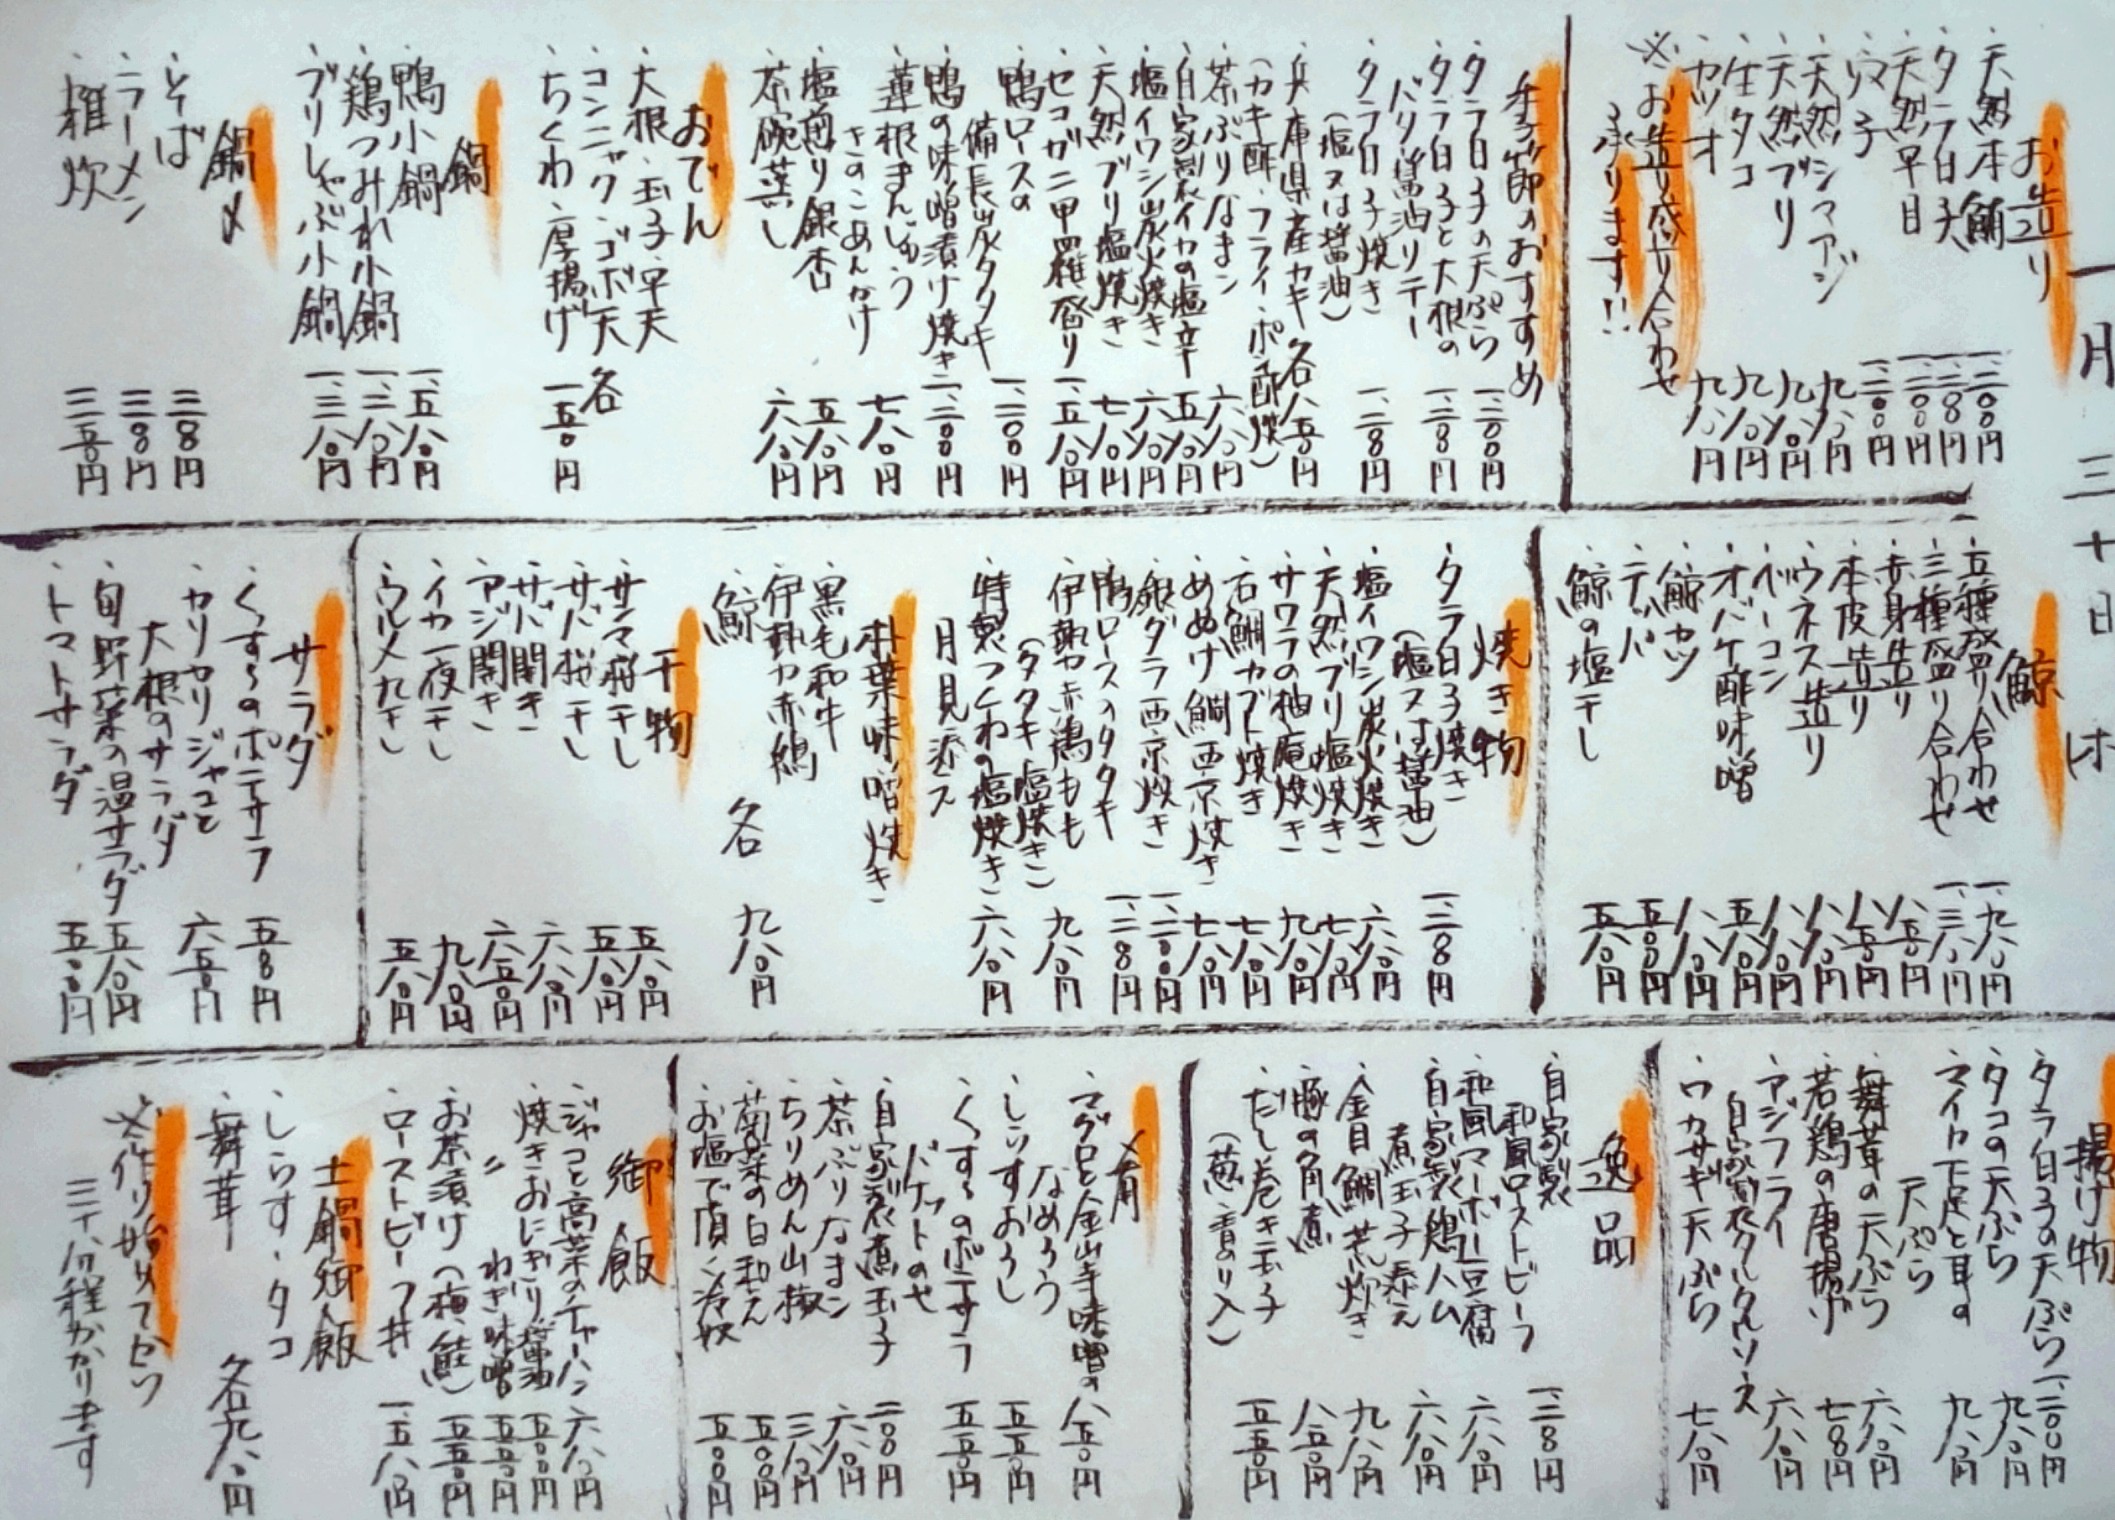 一月三十日 木
お造り
・天然本鮪 一、二〇〇円
・タラ白子 一、二八〇円
・天然平目 一、二〇〇円
・マ子 一、二〇〇円
・天然シマアジ 九八〇円
・天然ブリ 九八〇円
・生タコ 九八〇円
・カツオ 九八〇円
※お造り盛り合わせ
承ります!!
季節のおすすめ
・タラ白子の天ぷら 一、二〇〇円
・タラ白子と大根の
バタ醤油ソテー 一、二八〇円
・タラ白子焼き
(塩又は醤油) 一、二八〇円
・兵庫県産カキ 各八五〇円
(カキ酢・フライ・ポン酢焼)
・茶ぶりなまこ 六八〇円
・自家製イカの塩辛 五八〇円
・塩イワシ炭火焼き 六八〇円
・天然ブリ塩焼き 七八〇円
・セコガニ甲羅盛り 一、五八〇円
・鴨ロースの
備長炭タタキ 一、二〇〇円
・鴨の味噌漬け焼き 一、二〇〇円
・蓮根まんじゅう
きのこあんかけ 七八〇円
・塩煎り銀杏 五八〇円
・茶碗蒸し 六八〇円
おでん
・大根・玉子・平天
・コンニャク・ゴボ天 各
・ちくわ・厚揚げ 一五〇円
鍋
・鴨小鍋 一、五八〇円
・鶏つみれ小鍋 一、三八〇円
・ブリしゃぶ小鍋 一、三八〇円
鍋〆
・そば 三八〇円
・ラーメン 三八〇円
・雑炊 三五〇円
鯨
・五種盛り合わせ 一、九八〇円
・三種盛り合わせ 一、三八〇円
・赤身造り 八五〇円
・本皮造り 八五〇円
・ウネス造り 八八〇円
・ベーコン 八八〇円
・オバケ酢味噌 五八〇円
・鯨カツ 八八〇円
・テッパ 五〇〇円
・鯨の塩干し 五八〇円
焼き物
・タラ白子焼き
(塩又は醤油) 一、二八〇円
・塩イワシ炭火焼き 六八〇円
・天然ブリ塩焼き 七八〇円
・サワラの柚庵焼き 九八〇円
・石鯛カブト焼き 七八〇円
・めぬけ鯛西京焼き 七八〇円
・銀ダラ西京焼き 一、二〇〇円
・鴨ロースのタタキ 一、二八〇円
・伊勢赤鶏もも
(タタキ・塩焼き) 九八〇円
・特製つくねの塩焼き 六八〇円
月見添え
朴葉味噌焼き
・黒毛和牛
・伊勢赤鶏
・鯨 各 九八〇円
干物
・サンマ桜干し 五八〇円
・サバ桜干し 五八〇円
・サバ開き 六八〇円
・アジ開き 六五〇円
・イカ一夜干し 九八〇円
・ウルメ丸干し 五八〇円
サラダ
・くずしのポテサラ 五八〇円
・カリカリジャコと
大根のサラダ 六五〇円
・旬野菜の温サラダ 五八〇円
・トマトサラダ 五〇〇円
揚げ物
・タラ白子の天ぷら 一、二〇〇円
・タコの天ぷら 九八〇円
・マイカ下足と耳の
天ぷら 九八〇円
・舞茸の天ぷら 六八〇円
・若鶏の唐揚げ 七八〇円
・アジフライ
自家製タルタルソース 六八〇円
・ワカサギ天ぷら 七八〇円
逸品
・自家製
和風ローストビーフ 一、二八〇円
・和風マーボー豆腐 六八〇円
・自家製鶏ハム
煮玉子添え 六八〇円
・金目鯛荒炊き 九八〇円
・豚の角煮 八五〇円
・だし巻き玉子
(葱・青のり入) 五五〇円
〆肴
・マグロと金山寺味噌の
なめろう 八五〇円
・しらすおろし 五五〇円
・くずしのポテサラ 五五〇円
・自家製煮玉子
バケットのせ 二〇〇円
・茶ぶりなまこ 六八〇円
・ちりめん山椒 三八〇円
・菊菜の白和え 五〇〇円
・お塩で頂く冷奴 五〇〇円
御飯
・ジャコと高菜のチャーハン 六八〇円
・焼きおにぎり醤油 五〇〇円
・〃 ねぎ味噌 五五〇円
・お茶漬け(梅・鮭) 五五〇円
・ローストビーフ丼 一、五八〇円
土鍋御飯
・しらす・タコ
・舞茸 各九八〇円
※作り始めてから
三十分程かかります